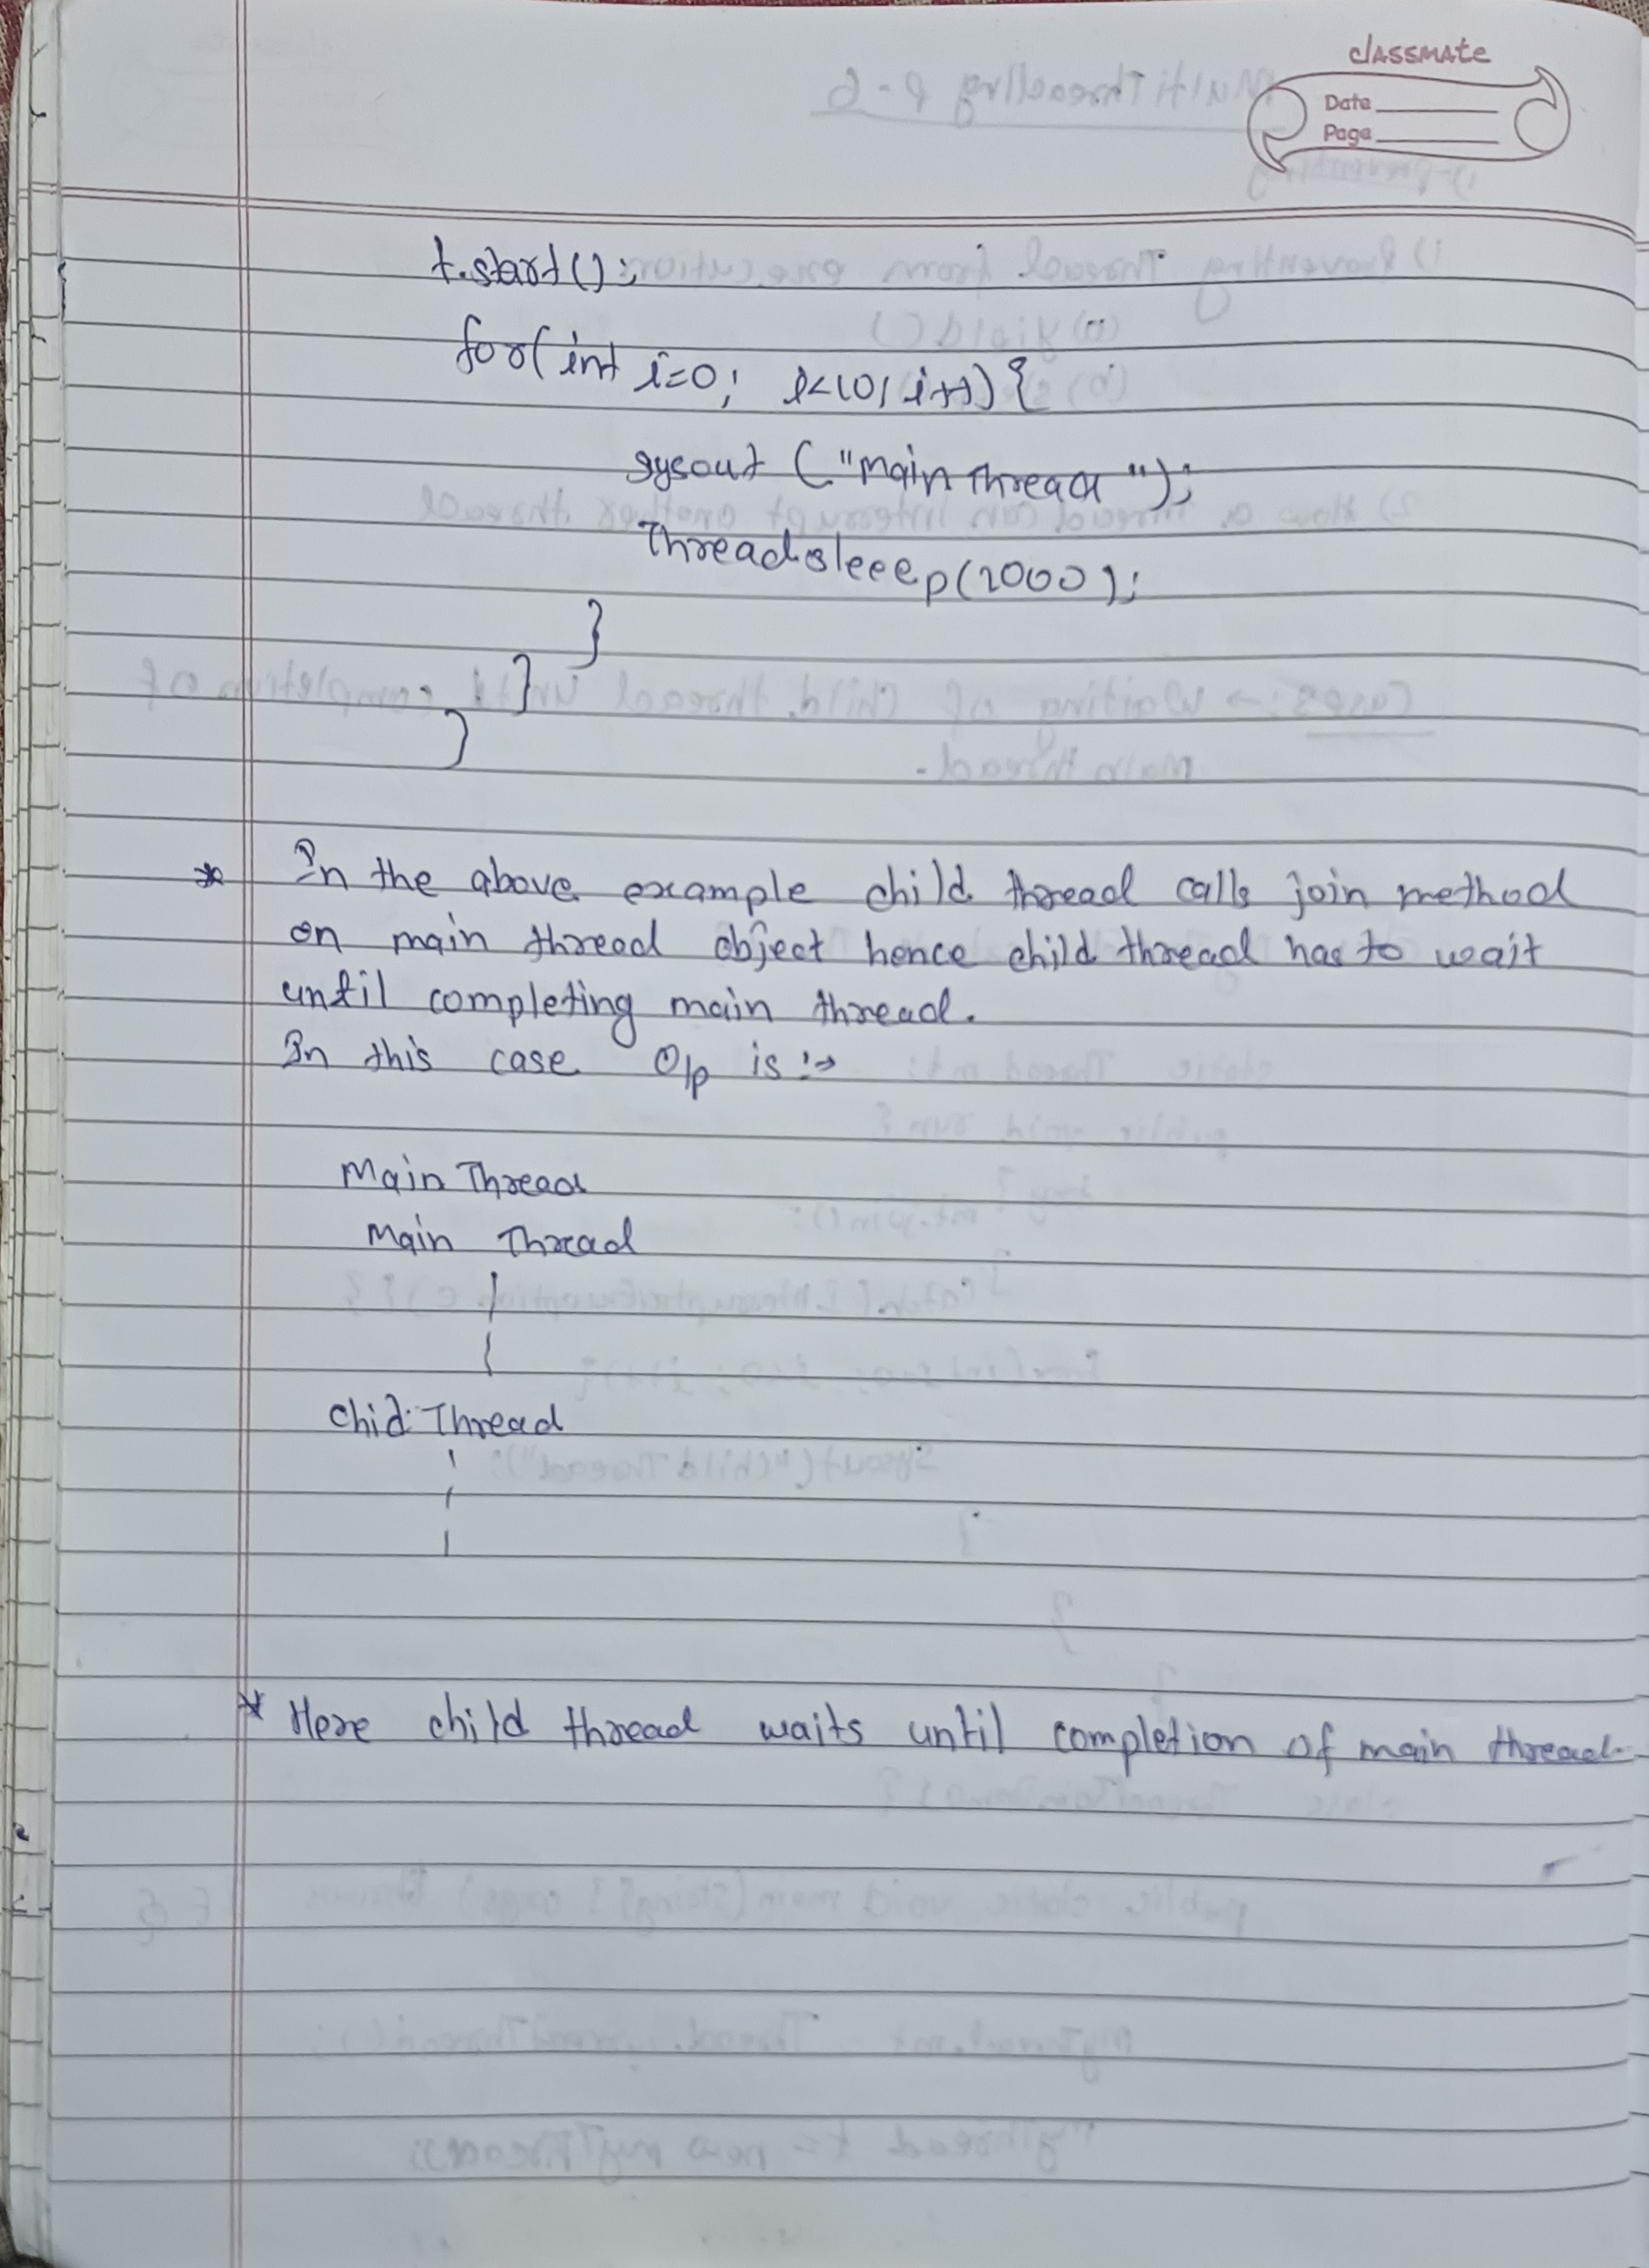 classmate
Date
Page
t.start();
for(int i=0; i<10; i++) {
sysout ("main thread");
Thread.sleeep(2000);
}
}
}
* In the above example child thread calls join method
on main thread object hence child thread has to wait
until completing main thread.
In this case O/p is :→
Main Thread
Main Thread
Chid Thread
* Here child thread waits until completion of main thread.